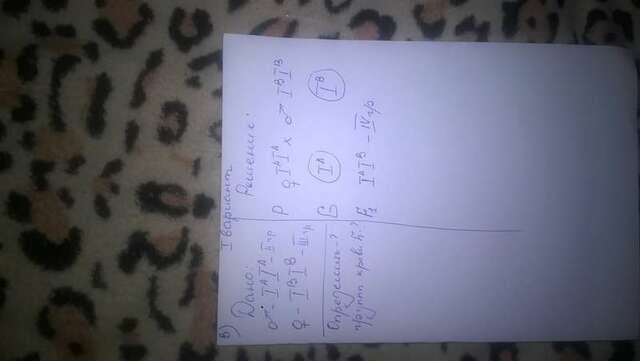 I вариант
в) Дано:
♂ - IᴬIᴬ - II гр
♀ - IᴮIᴮ - III гр
Определить - ?
групп крови F₁ - ?
Решение:
P ♀ IᴬIᴬ x ♂ IᴮIᴮ
G Iᴬ Iᴮ
F₁ IᴬIᴮ - IV гр